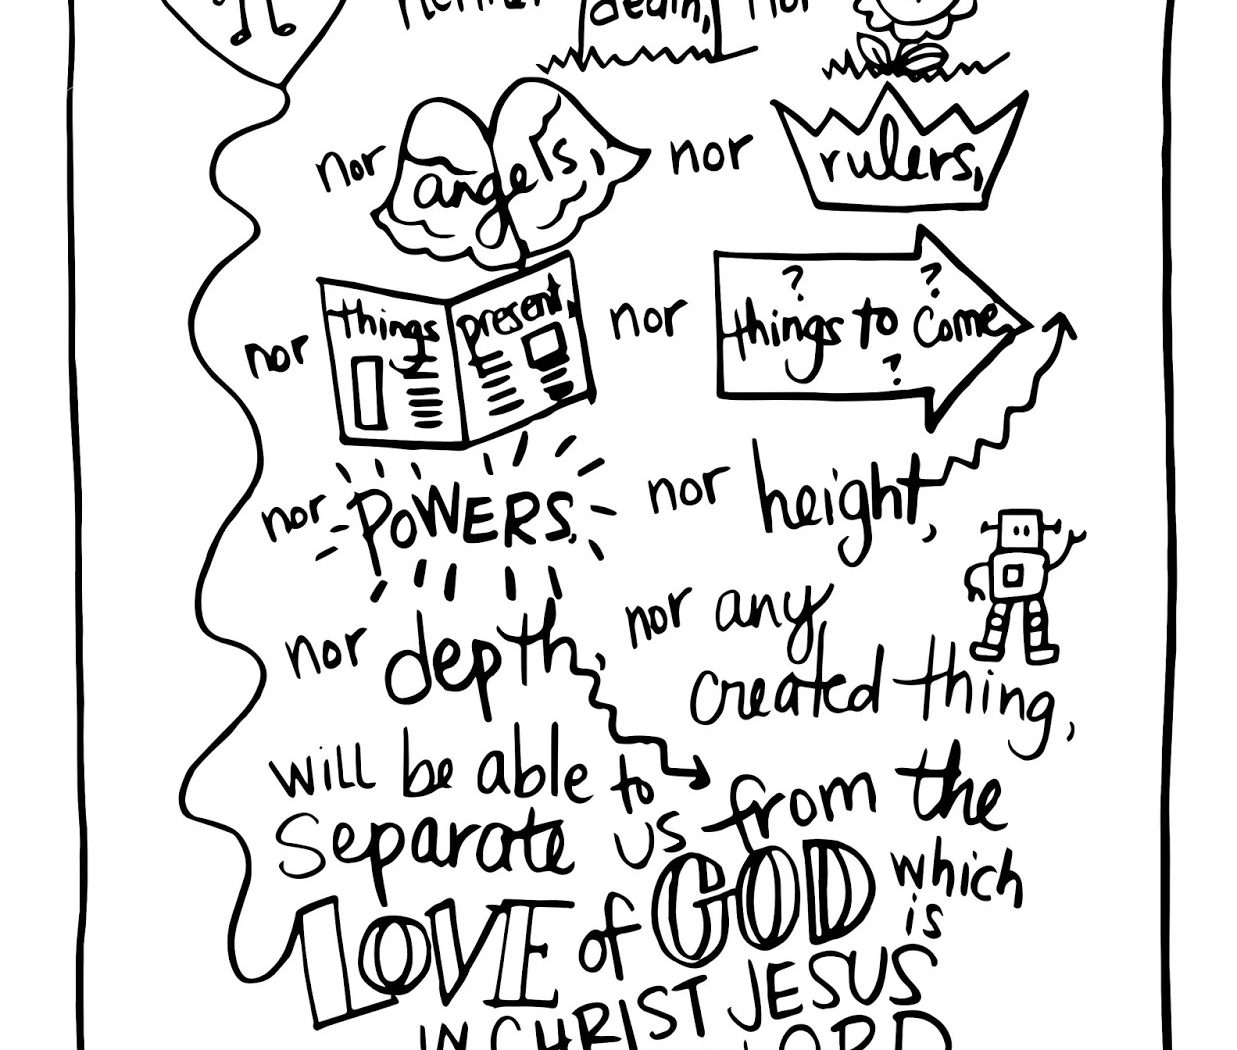 neither death, nor
nor angels, nor rulers,
nor things present, nor things to come,
? ? ?
nor POWERS, nor height,
nor depth, nor any
created thing,
will be able to
separate us from the
LOVE of GOD which
is
IN CHRIST JESUS
LORD